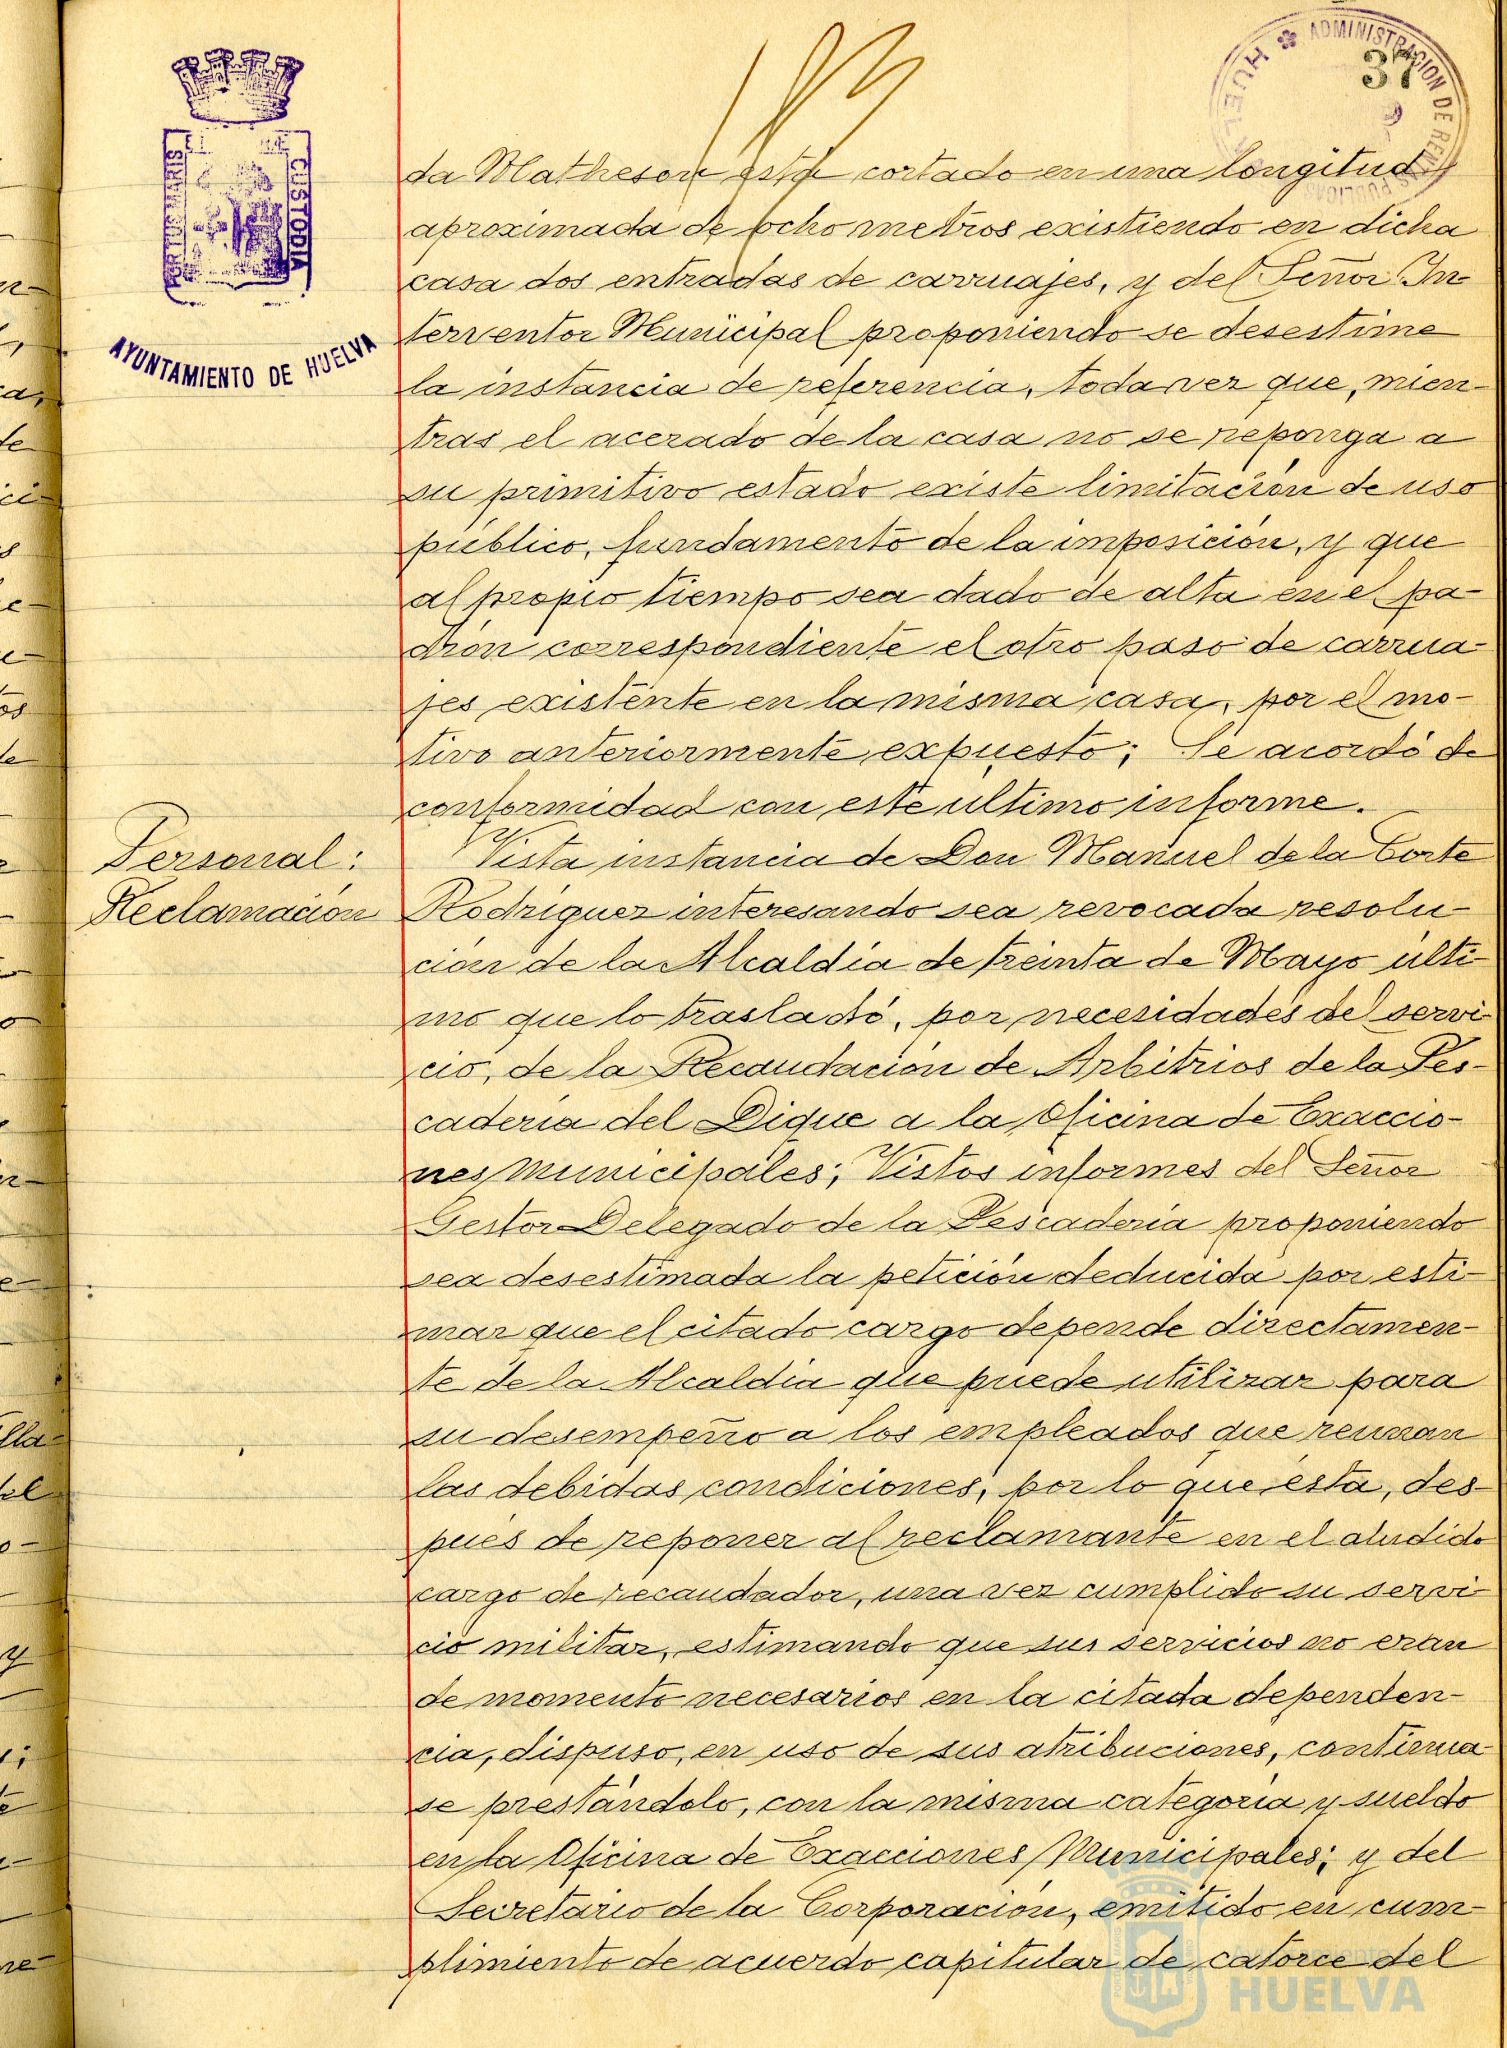 ADMINISTRACION DE RENTAS PUBLICAS
HUELVA
37
PORTUS MARIS
CUSTODIA
AYUNTAMIENTO DE HUELVA
da Matheson está cortado en una longitud
aproximada de ocho metros existiendo en dicha
casa dos entradas de carruajes, y del Señor In-
terventor Municipal proponiendo se desestime
la instancia de referencia, toda vez que, mien-
tras el acerado de la casa no se reponga a
su primitivo estado existe limitación de uso
público, fundamento de la imposición, y que
al propio tiempo sea dado de alta en el pa-
drón correspondiente el otro paso de carrua-
jes existente en la misma casa, por el mo-
tivo anteriormente expuesto; Se acordó de
conformidad con este último informe.
Personal:
Reclamación
Vista instancia de Don Manuel de la Corte
Rodriguez interesando sea revocada resolu-
ción de la Alcaldía de treinta de Mayo últi-
mo que lo trasladó, por necesidades del servi-
cio, de la Recaudación de Arbitrios de la Pes-
cadería del Dique a la Oficina de Exaccio-
nes Municipales; Vistos informes del Señor
Gestor Delegado de la Pescadería proponiendo
sea desestimada la petición deducida por esti-
mar que el citado cargo depende directamen-
te de la Alcaldía que puede utilizar para
su desempeño a los empleados que reunan
las debidas condiciones, por lo que ésta, des-
pués de reponer al reclamante en el aludido
cargo de recaudador, una vez cumplido su servi-
cio militar, estimando que sus servicios no eran
de momento necesarios en la citada dependen-
cia, dispuso, en uso de sus atribuciones, continua-
se prestándolo, con la misma categoría y sueldo
en la Oficina de Exacciones Municipales; y del
Secretario de la Corporación, emitido en cum-
plimiento de acuerdo capitular de catorce del
HUELVA